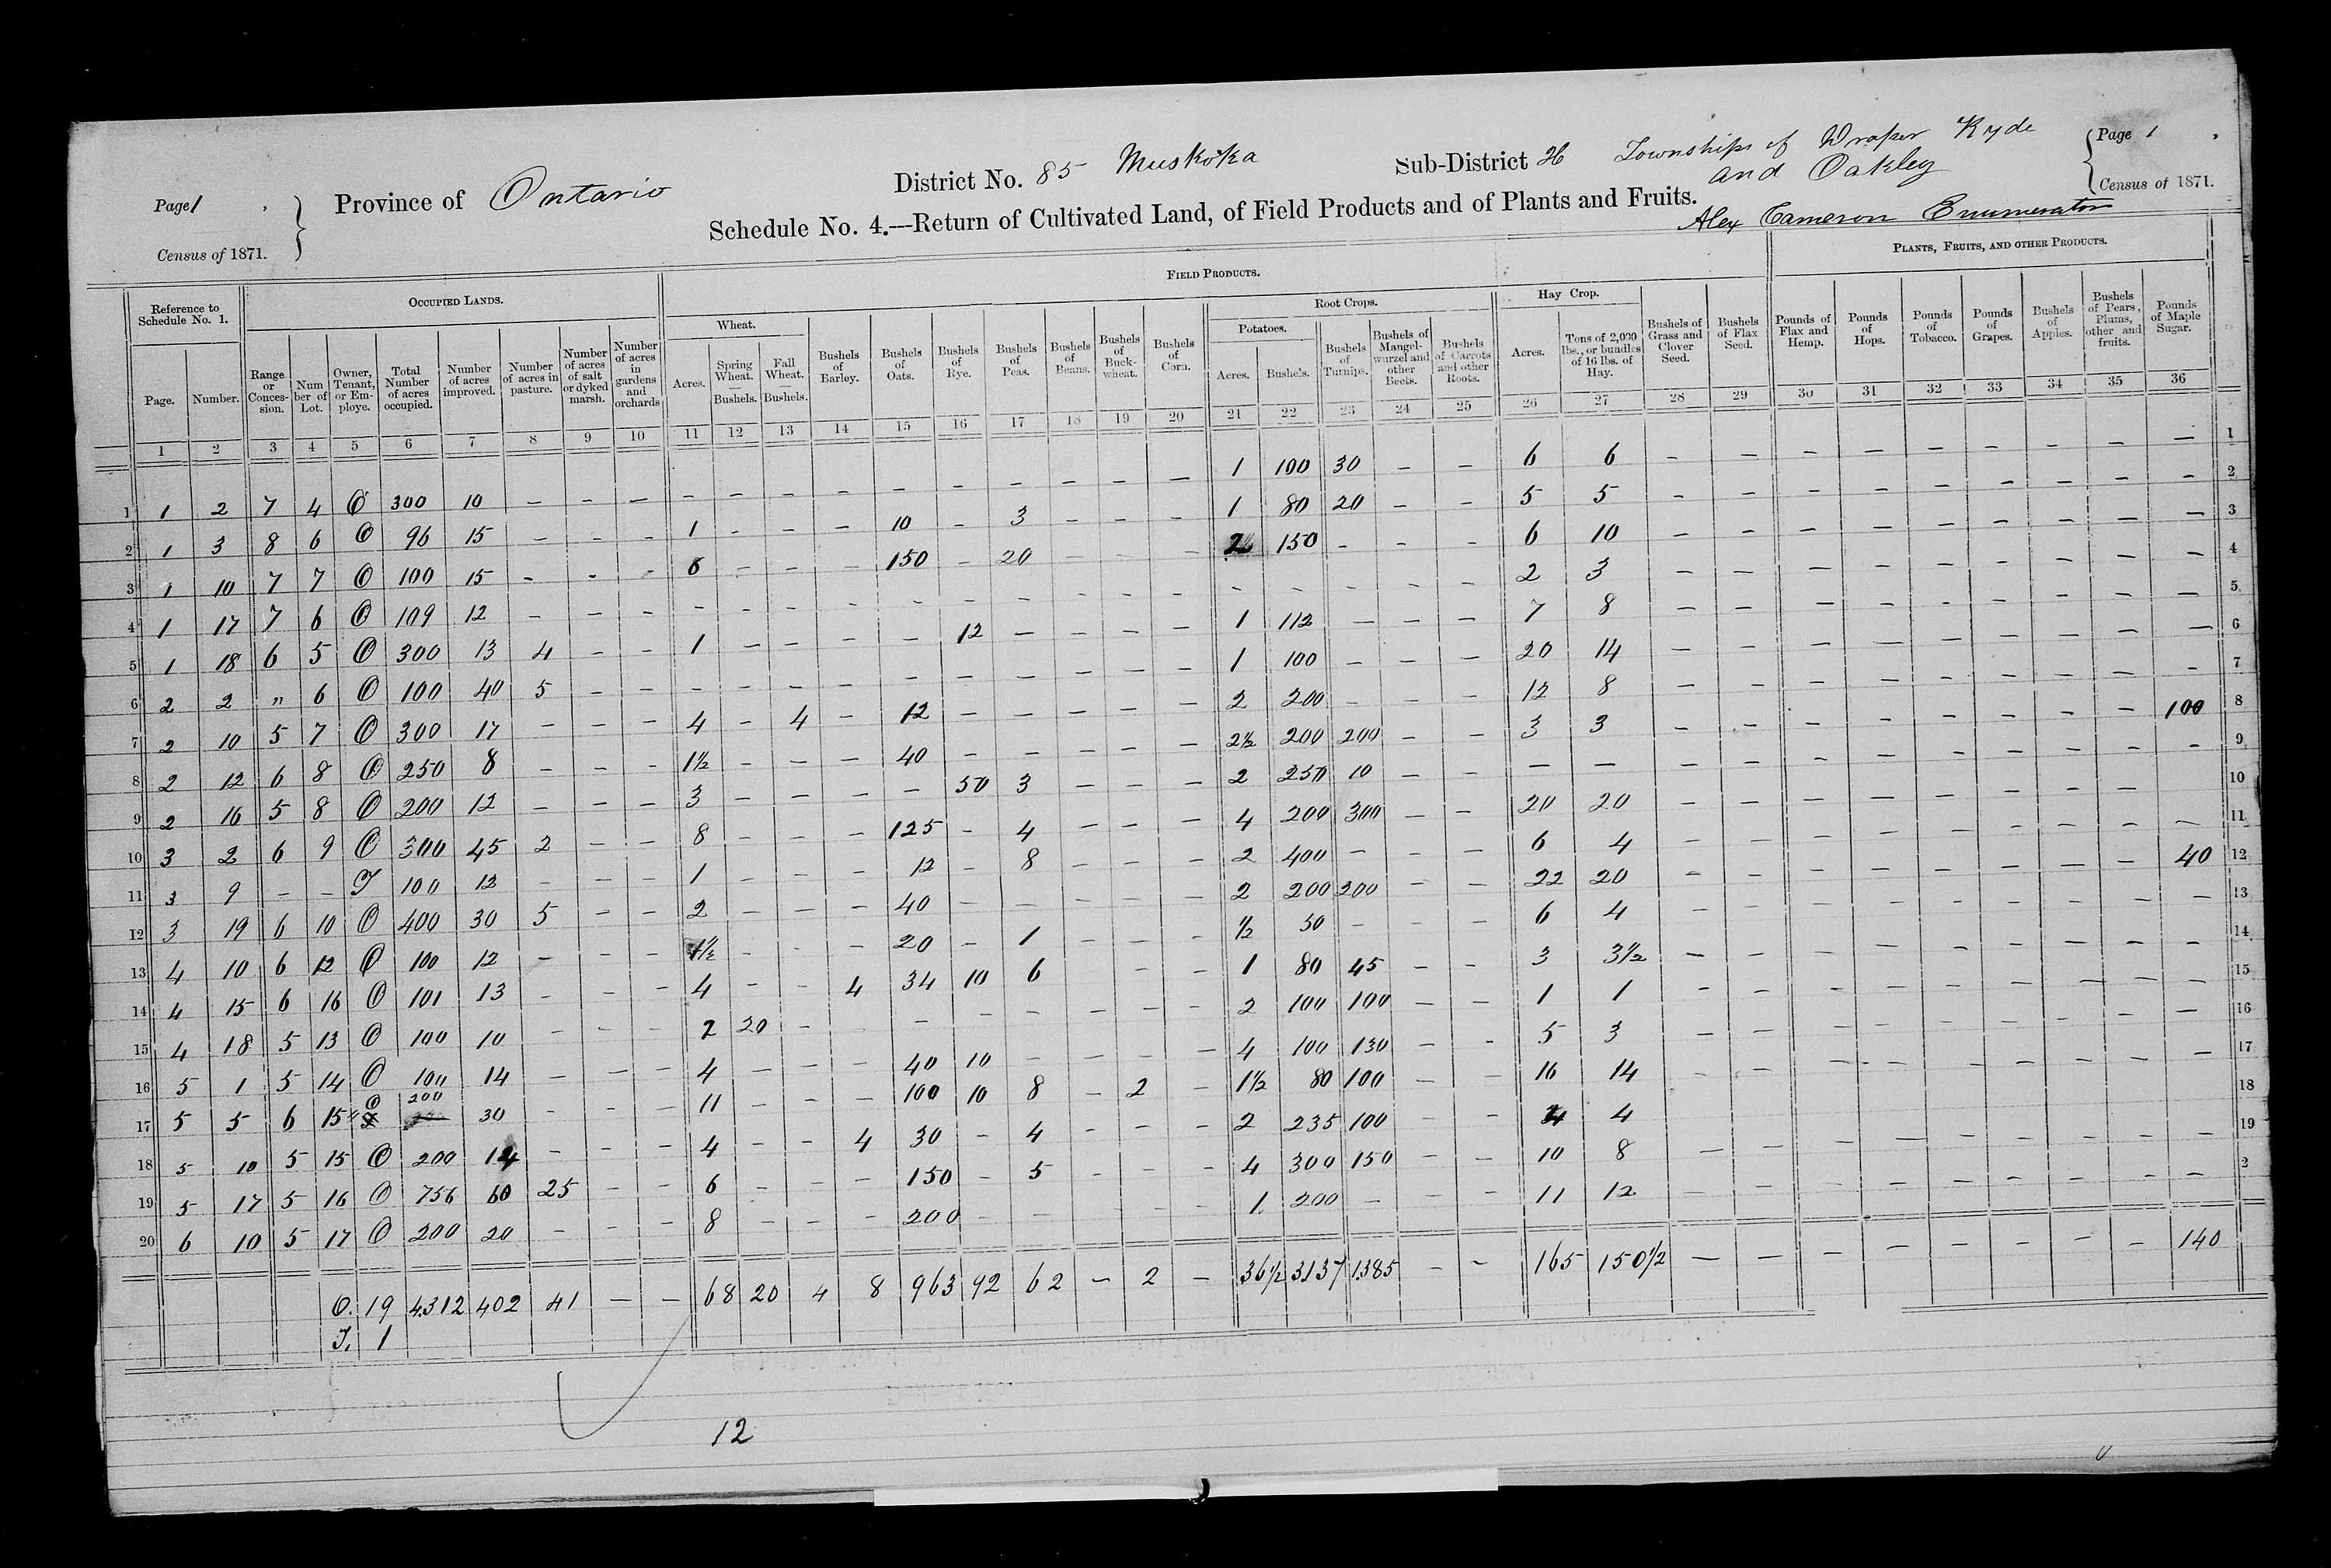 Page 1
Census of 1871.
Province of Ontario
District No. 85 Muskoka
Sub-District 26 Townships of Draper Ryde
and Oakley
Page 1
Census of 1871.
Schedule No. 4.---Return of Cultivated Land, of Field Products and of Plants and Fruits.
Alex Cameron Enumerator
Reference to Schedule No. 1.
OCCUPIED LANDS.
FIELD PRODUCTS.
PLANTS, FRUITS, AND OTHER PRODUCTS.
Wheat.
Root Crops.
Potatoes.
Hay Crop.
Page. Number. Range or Conces-sion. Num ber of Lot. Owner, Tenant, or Em-ploye. Total Number of acres occupied. Number of acres improved. Number of acres in pasture. Number of acres of salt or dyked marsh. Number of acres in gardens and orchards
Acres. Spring Wheat. — Bushels. Fall Wheat. — Bushels. Bushels of Barley. Bushels of Oats. Bushels of Rye. Bushels of Peas. Bushels of Beans. Bushels of Buck-wheat. Bushels of Corn.
Acres. Bushels. Bushels of Turnips. Bushels of Mangel-wurzel and other Beets. Bushels of Carrots and other Roots. Acres. Tons of 2,000 lbs., or bundles of 16 lbs. of Hay. Bushels of Grass and Clover Seed. Bushels of Flax Seed.
Pounds of Flax and Hemp. Pounds of Hops. Pounds of Tobacco. Pounds of Grapes. Bushels of Apples. Bushels of Pears, Plums, other and fruits. Pounds of Maple Sugar.
1 2 3 4 5 6 7 8 9 10 11 12 13 14 15 16 17 18 19 20 21 22 23 24 25 26 27 28 29 30 31 32 33 34 35 36
1 1 2 7 4 O 300 10 — — — — — — — — — — — — — 1 100 30 — — 6 6 — — — — — — — — — 1
2 1 3 8 6 O 96 15 — — — 1 — — — 10 — 3 — — — 1 80 20 — — 5 5 — — — — — — — — — 2
3 1 10 7 7 O 100 15 — — — 6 — — — 150 — 20 — — — 2½ 150 — — — 6 10 — — — — — — — — — 3
4 1 17 7 6 O 109 12 — — — — — — — — — — — — — — — — — — 2 3 — — — — — — — — — 4
5 1 18 6 5 O 300 13 4 — — 1 — — — — 12 — — — — 1 112 — — — 7 8 — — — — — — — — — 5
6 2 2 " 6 O 100 40 5 — — — — — — — — — — — — 1 100 — — — 20 14 — — — — — — — — — 6
7 2 10 5 7 O 300 17 — — — 4 — 4 — 12 — — — — — 2 200 — — — 12 8 — — — — — — — — — 7
8 2 12 6 8 O 250 8 — — — 1½ — — — 40 — — — — — 2½ 200 200 — — 3 3 — — — — — — — — 100 8
9 2 16 5 8 O 200 12 — — — 3 — — — — 50 3 — — — 2 250 10 — — — — — — — — — — — — — 9
10 3 2 6 9 O 300 45 2 — — 8 — — — 125 — 4 — — — 4 200 300 — — 20 20 — — — — — — — — 10
11 3 9 — — T 100 12 — — — 1 — — — 12 — 8 — — — 2 400 — — — 6 4 — — — — — — — — — 11
12 3 19 6 10 O 400 30 5 — — 2 — — — 40 — — — — — 2 200 200 — — 22 20 — — — — — — — — 40 12
13 4 10 6 12 O 100 12 — — — 1½ — — — 20 — 1 — — — ½ 50 — — — 6 4 — — — — — — — — — 13
14 4 15 6 16 O 101 13 — — — 4 — — 4 34 10 6 — — 1 80 45 — — 3 3½ — — — — — — — — — 14
15 4 18 5 13 O 100 10 — — — 2 20 — — — — — — — — 2 100 100 — — 1 1 — — — — — — — — — 15
16 5 1 5 14 O 100 14 — — — 4 — — — 40 10 — — — — 4 100 130 — — 5 3 — — — — — — — — — 16
17 5 5 6 15 O 200 30 — — — 11 — — — 100 10 8 — 2 — 1½ 80 100 — — 16 14 — — — — — — — — — 17
18 5 10 5 15 O 200 14 — — — 4 — — 4 30 — 4 — — — 2 235 100 — — 4 4 18
19 5 17 5 16 O 756 60 25 — — 6 — — — 150 — 5 — — — 4 300 150 — — 10 8 — — — — — — — — — 19
20 6 10 5 17 O 200 20 — — — 8 — — — 200 — — — — — 1 200 — — — 11 12 — — — — — — — — — 2
O. 19 4312 402 41 — — 68 20 4 8 963 92 62 — 2 — 36½ 3137 1385 — — 165 150½ — — — — — — — — 140
T. 1
12